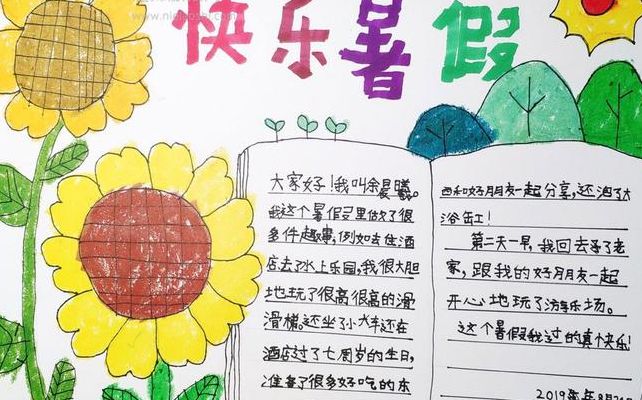 快乐暑假
大家好！我叫余晨曦。
我这个暑假里做了很
多件趣事，例如去住酒
店去了水上乐园，我很大胆
地玩了很高很高的滑
滑梯。还坐了小火车还在
酒店过了七周岁的生日，
准备了很多好吃的东
西和好朋友一起分享，还泡了大
浴缸！
第二天一早，我回去了老
家，跟我的好朋友一起
开心地玩了游乐场。
这个暑假我过的真快乐！
2019年8月